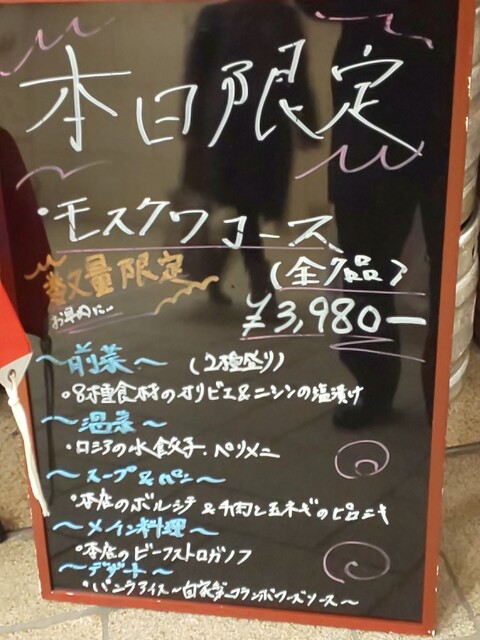 本日限定
・モスクワコース
数量限定
お早めに…
(全7品)
¥3,980ー
〜前菜〜 (2種盛り)
・8種食材のオリビエ&ニシンの塩漬け
〜温菜〜
・ロシアの水餃子、ペリメニ
〜スープ&パン〜
・本店のボルシチ&牛肉と玉ネギのピロシキ
〜メイン料理〜
・本店のビーフストロガノフ
〜デザート〜
・バニラアイス〜自家製フランボワーズソース〜